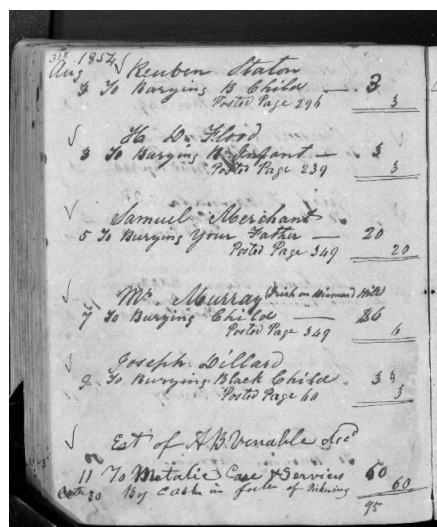 318 1854 Reuben Staton
Aug 3 To Burying B Child — 3
Posted Page 296 3
H. D. Flood
3 To Burying B Infant — 3
Posted Page 239 3
Samuel Merchant
5 To Burying Your Father — 20
Posted Page 349 20
Mr. Murray (Irish on Diamond Hill)
7 To Burying Child — 6
Posted Page 349 6
Joseph Dillard
9 To Burying Black Child 3
Posted Page 60 3
Est of A B Venable decd
11 To Metalic Case & Services 60
30 By Cash in full of 60
95